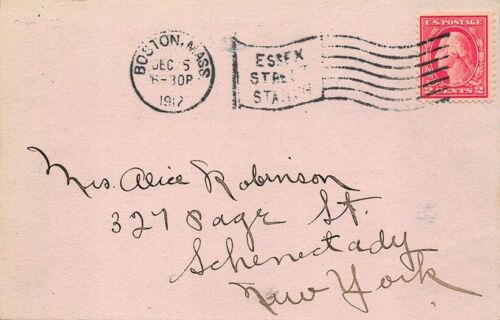 BOSTON, MASS.
DEC 5
6-30P
1917
ESSEX
STREET
STATION
U.S. POSTAGE
2 CENTS 2
Mrs. Alice Robinson
327 Page St.
Schenectady
New York